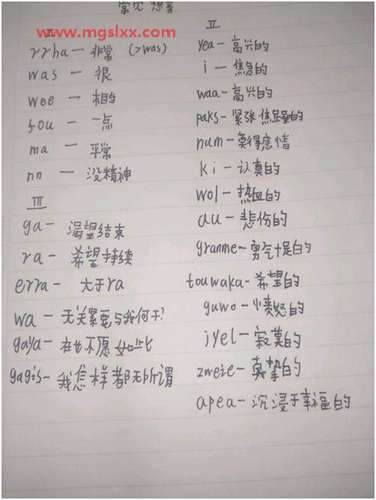 常见 想音
www.mgslxx.com
II
rrha — 非常 (>was)
was — 很
wee — 相当
fou — 一点
ma — 平常
nn — 没精神
III
ga — 渴望结束
ra — 希望持续
erra — 大于ra
wa — 无关紧要与我何干?
gaya — 在也不愿如此
gagis — 我怎样都无所谓
yea — 高兴的
i — 焦急的
waa — 高兴的
paks — 紧张焦虑的
num — 莫得感情
ki — 认真的
wol — 热血的
au — 悲伤的
granme — 勇气十足的
touwaka — 希望的
guwo — 愤怒的
jyel — 寂寞的
zweie — 真挚的
apea — 沉浸于幸福的